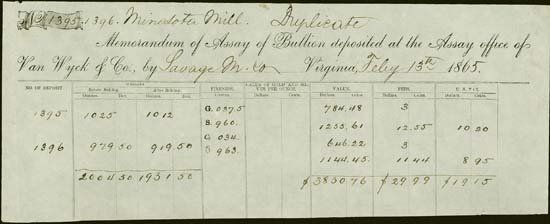 No 1395-1396. Minesota Mill. Duplicate
Memorandum of Assay of Bullion deposited at the Assay office of
Van Wyck & Co., by Savage M. Co Virginia, Feby 13th 1865.
NO. OF DEPOSIT Before Melting. After Melting. FINENESS. VALUE OF GOLD AND SILVER PER OUNCE. VALUE. FEES. U.S. TAX.
Ounces. Dec. Ounces. Dec. Dollars. Cents. Dollars. Cents. Dollars. Cents. Dollars. Cents.
1395 1025 1012 G. 037.5 784.48 3
S. 960. 1255.61 12.55 10 20
G. 034. 646.22 3
1396 979 50 919 50 S 963. 1144.45 11 44 8 95
2004 50 1931 50 $ 3830.76 $ 29.99 $ 19.15